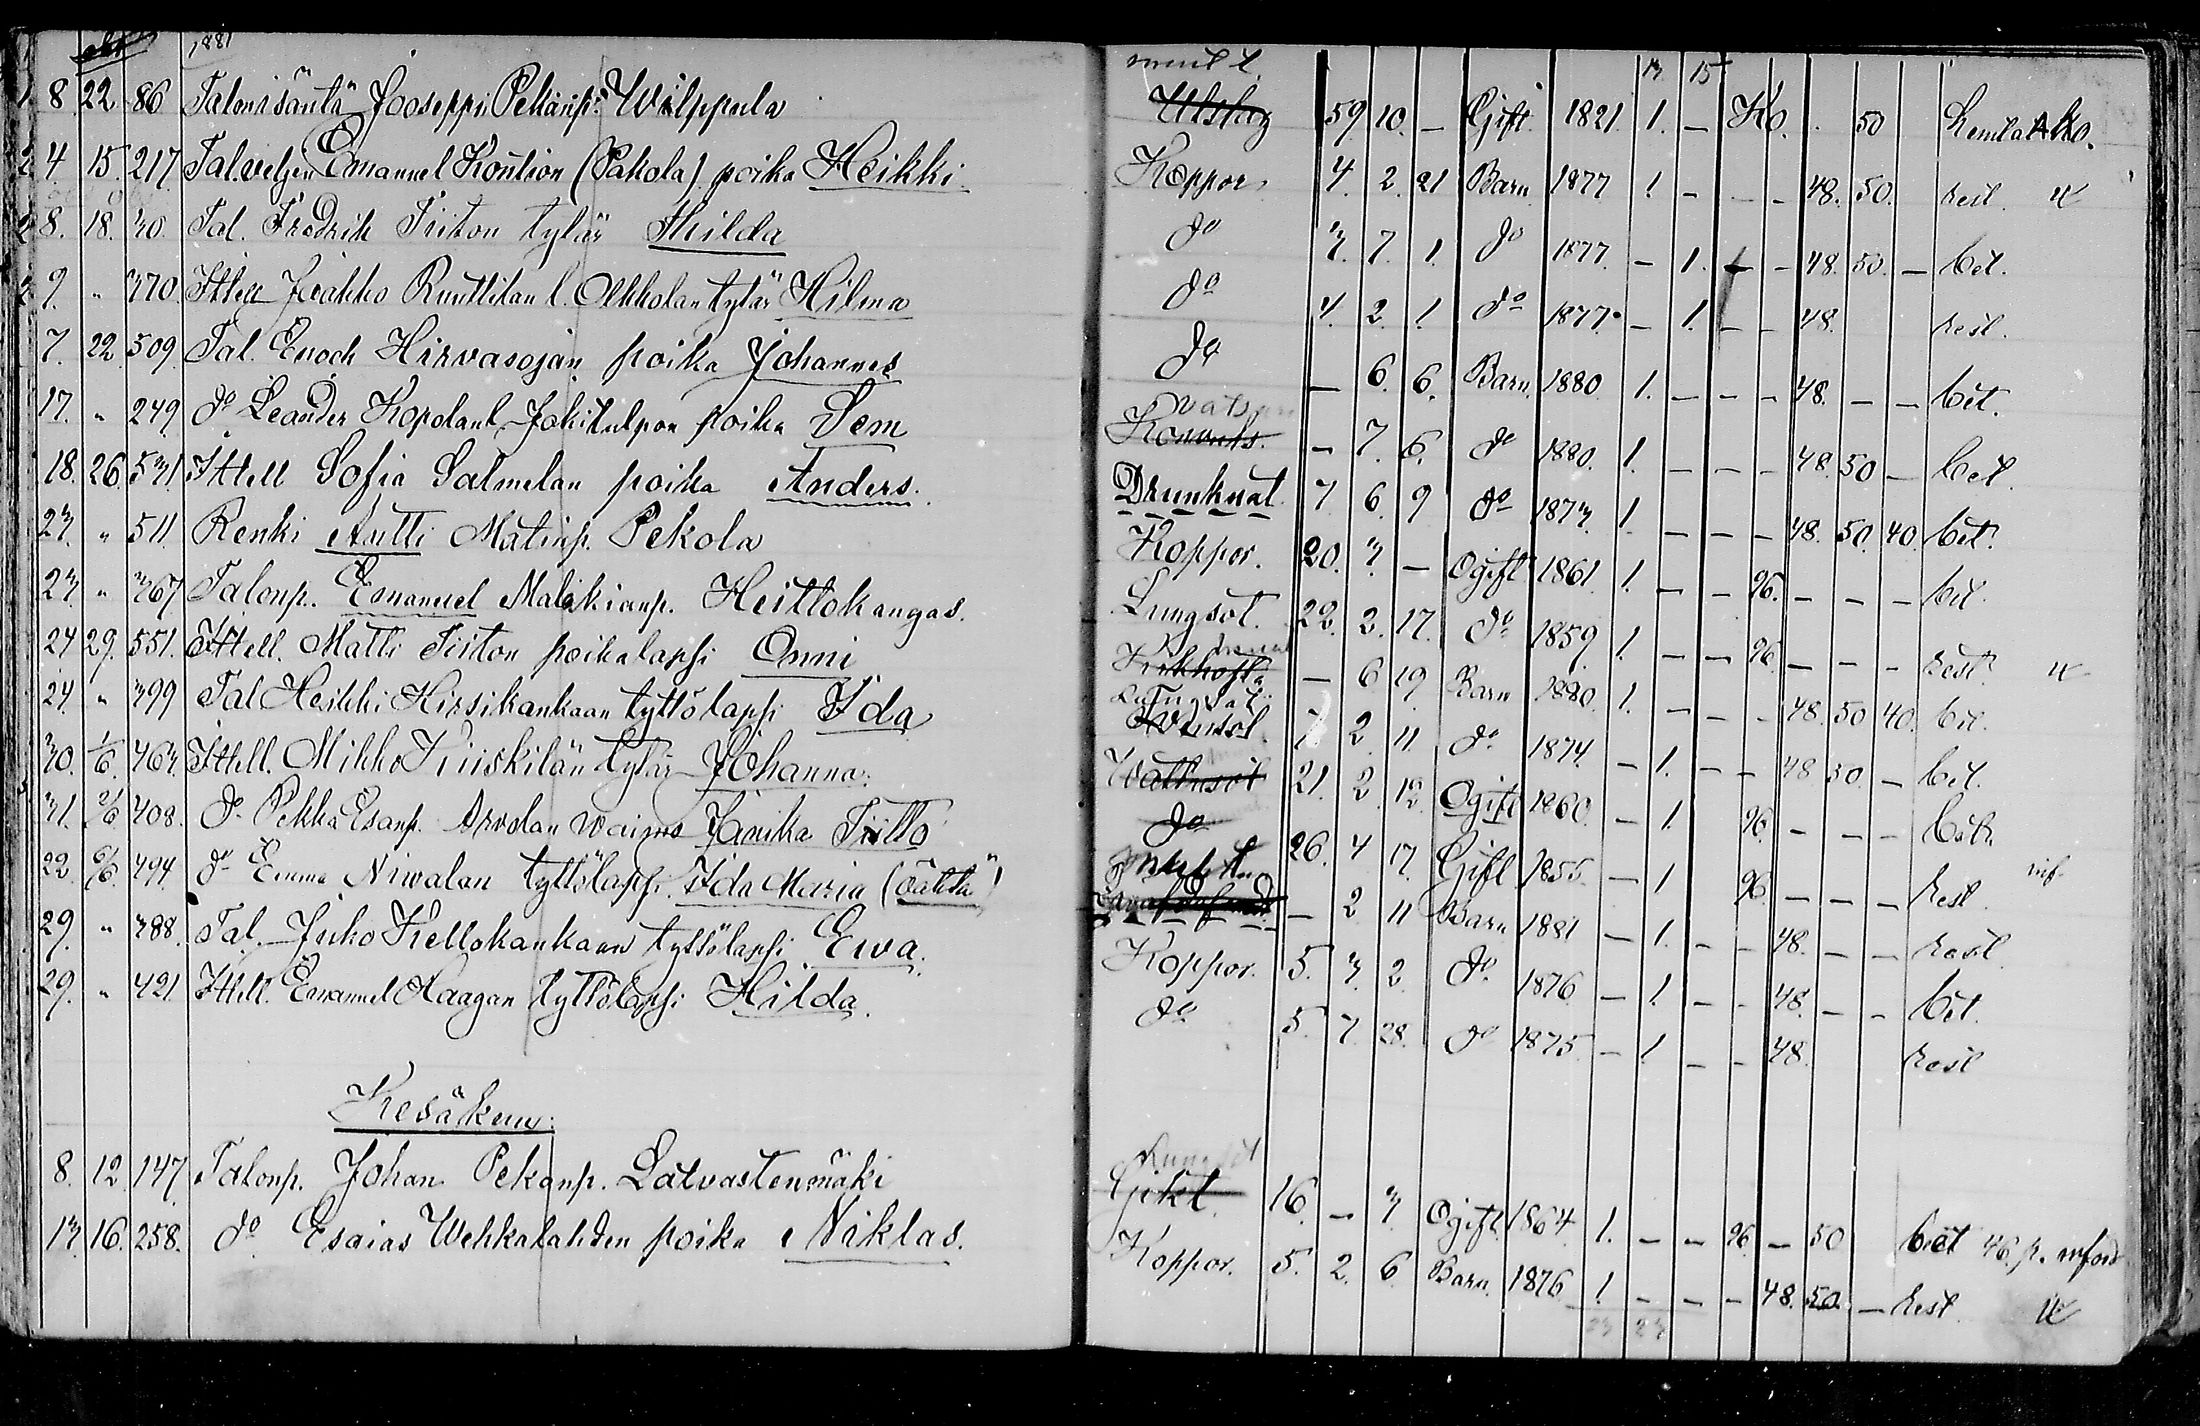 1881
8 22 86 Talonisäntä Jooseppi Pekanp. Wilppula 59 10. — Gift. 1821. 1. — Ko. 50
4. 15. 217. Tal.veljen Emanuel Kontion (Pakola) poika Heikki. Koppor. 4. 2. 21 Barn 1877 1. - - - 48. 50. rest.
8. 18. 30. Tal. Fredrik Tiiton tytär Hilda do 3. 7. 1. do 1877. — 1. — - 48. 50. — bet.
9. " 370 Ittell Jaakko Ruuttilan l. Olkkolan tytär Hilma do 4. 2. 1. do 1877. — 1. - - 48. rest.
7. 22 509. Tal. Enoch Hirvasojan poika Johannes do — 6. 6. Barn. 1880. 1. - - - 48. — — bet.
17. " 249. do Leander Kopolan l. Jokitulpon poika Sem Konvuls. — 7. 6. do 1880. 1. - - - 48. 50 — bet.
18. 26. 531. Ittell Sofia Salmelan poika Anders. Drunknat. 7 6 9 do 1873. 1. - - - 48. 50. 40. bet.
23. " 511 Renki Antti Matinp. Pekola Koppor. 20. 3. — Ogift 1861 1. - - 96. — — — bet.
23. " 367 Talonp. Emanuel Malakianp. Heittokangas. Lungsot. 22. 2. 17. do 1859. 1. — — 96. — — — rest.
24 29. 551. Ittell. Matti Tiiton poikalapsi Onni Kikhosta — 6 19 Barn 1880. 1. - - - 48. 50 40. bet.
24. " 399 Tal Heikki Hirsikankaan tyttölapsi Ida 7 2 11 do 1874. — 1. - - 48 50 — bet.
30. 1/6. 463. Ittell. Mikko Kiiskilän tytär Johanna. Wattusot 21. 2. 12. Ogift 1860. — 1. 96. — — —
31. 2/6. 408. do Pekka Esanp. Arvolan vaimo Janika Tiitto do 26. 4 17. Gift 1855. — 1 96 — — — Rest.
22. 6/6. 494. do Emma Niwalan tyttölapsi Ida Maria (äpärä) — 2 11 Barn. 1881 — 1. - - 48. — — Rest.
29. " 388. Tal. Juho Kellokankaan tyttölapsi Ewa. Koppor. 5. 3. 2. do 1876 — 1. - - 48. — - bet.
29. " 421. Ittell. Emanuel Haagan tyttölapsi Hilda. do 5. 7. 28. do 1875. — 1. - - 48. Rest
Kesäkuu.
8. 12. 147. Talonp. Johan Pekanp. Latvastenmäki Lungsot Gikt. 16. — 3. Ogift. 1864 1. — — 96. — 50 bet 46. p.
13. 16. 258. do Esaias Wehkalahden poika Niklas. Koppor. 5. 2. 6. Barn. 1876 1. - - - 48. 50. — Rest